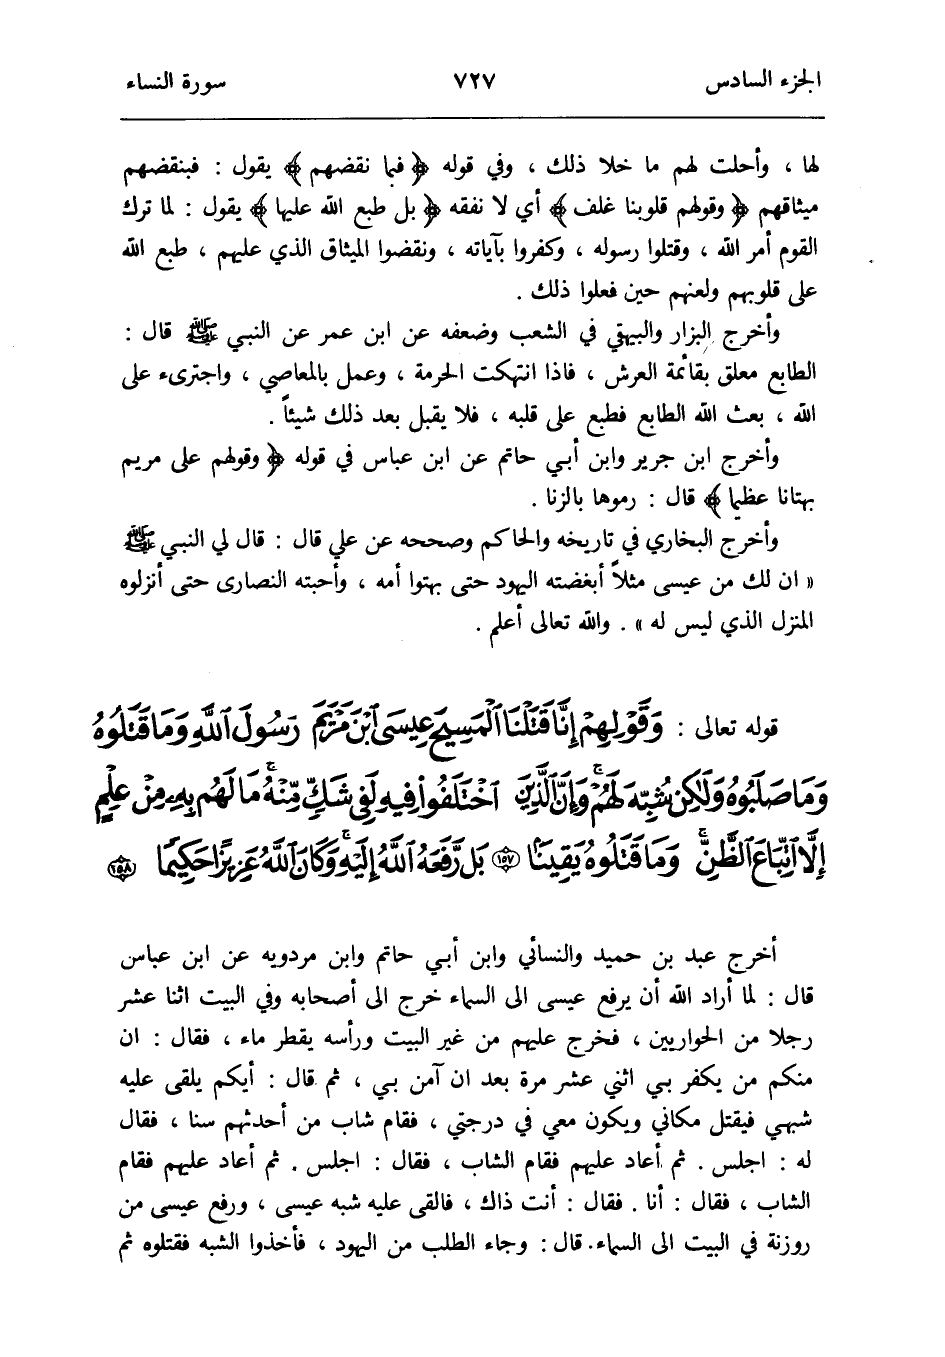 الجزء السادس ٧٢٧ سورة النساء
لها ، وأحلت لهم ما خلا ذلك ، وفي قوله ﴿ فبما نقضهم ﴾ يقول : فبنقضهم
ميثاقهم ﴿ وقولهم قلوبنا غلف ﴾ أي لا نفقه ﴿ بل طبع الله عليها ﴾ يقول : لما ترك
القوم أمر الله ، وقتلوا رسوله ، وكفروا بآياته ، ونقضوا الميثاق الذي عليهم ، طبع الله
على قلوبهم ولعنهم حين فعلوا ذلك .
وأخرج البزار والبيهقي في الشعب وضعفه عن ابن عمر عن النبي ﷺ قال :
الطابع معلق بقائمة العرش ، فاذا انتهكت الحرمة ، وعمل بالمعاصي ، واجترىء على
الله ، بعث الله الطابع فطبع على قلبه ، فلا يقبل بعد ذلك شيئاً .
وأخرج ابن جرير وابن أبي حاتم عن ابن عباس في قوله ﴿ وقولهم على مريم
بهتانا عظيما ﴾ قال : رموها بالزنا .
وأخرج البخاري في تاريخه والحاكم وصححه عن علي قال : قال لي النبي ﷺ
« ان لك من عيسى مثلاً أبغضته اليهود حتى بهتوا أمه ، وأحبته النصارى حتى أنزلوه
المنزل الذي ليس له » . والله تعالى أعلم .
قوله تعالى : وَقَوْلِهِمْ إِنَّا قَتَلْنَا ٱلْمَسِيحَ عِيسَى ٱبْنَ مَرْيَمَ رَسُولَ ٱللَّهِ وَمَا قَتَلُوهُ
وَمَا صَلَبُوهُ وَلَٰكِن شُبِّهَ لَهُمْ ۚ وَإِنَّ ٱلَّذِينَ ٱخْتَلَفُوا۟ فِيهِ لَفِى شَكٍّ مِّنْهُ ۚ مَا لَهُم بِهِۦ مِنْ عِلْمٍ
إِلَّا ٱتِّبَاعَ ٱلظَّنِّ ۚ وَمَا قَتَلُوهُ يَقِينًۢا ١٥٧ بَل رَّفَعَهُ ٱللَّهُ إِلَيْهِ ۚ وَكَانَ ٱللَّهُ عَزِيزًا حَكِيمًا ١٥٨
أخرج عبد بن حميد والنسائي وابن أبي حاتم وابن مردويه عن ابن عباس
قال : لما أراد الله أن يرفع عيسى الى السماء خرج الى أصحابه وفي البيت اثنا عشر
رجلا من الحواريين ، فخرج عليهم من غير البيت ورأسه يقطر ماء ، فقال : ان
منكم من يكفر بي اثني عشر مرة بعد ان آمن بي ، ثم قال : أيكم يلقى عليه
شبهي فيقتل مكاني ويكون معي في درجتي ، فقام شاب من أحدثهم سنا ، فقال
له : اجلس . ثم أعاد عليهم فقام الشاب ، فقال : اجلس . ثم أعاد عليهم فقام
الشاب ، فقال : أنا . فقال : أنت ذاك ، فالقى عليه شبه عيسى ، ورفع عيسى من
روزنة في البيت الى السماء. قال : وجاء الطلب من اليهود ، فأخذوا الشبه فقتلوه ثم